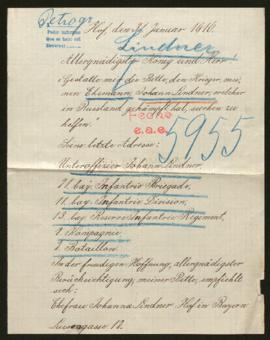 Petrogr.
Hof, den 21. Januar 1916.
Lindner
Allergnädigster König und Herr!
Gestatte mir die Bitte, den Krieger, mei-
nen Ehemann, Johann Lindner, welcher
in Russland gekämpft hat, suchen zu
helfen!
5955
Seine letzte Adresse:
Unteroffizier Johann Lindner,
11. bay. Infantrie Division,
13. bay. Reserve Infantrie Regiment,
1. Kompagnie,
1. Bataillon.
In der freudigen Hoffnung, allergnädigster
Berücksichtigung, meiner Bitte, empfiehlt
sich:
Ehefrau Johanna Lindner Hof in Bayern